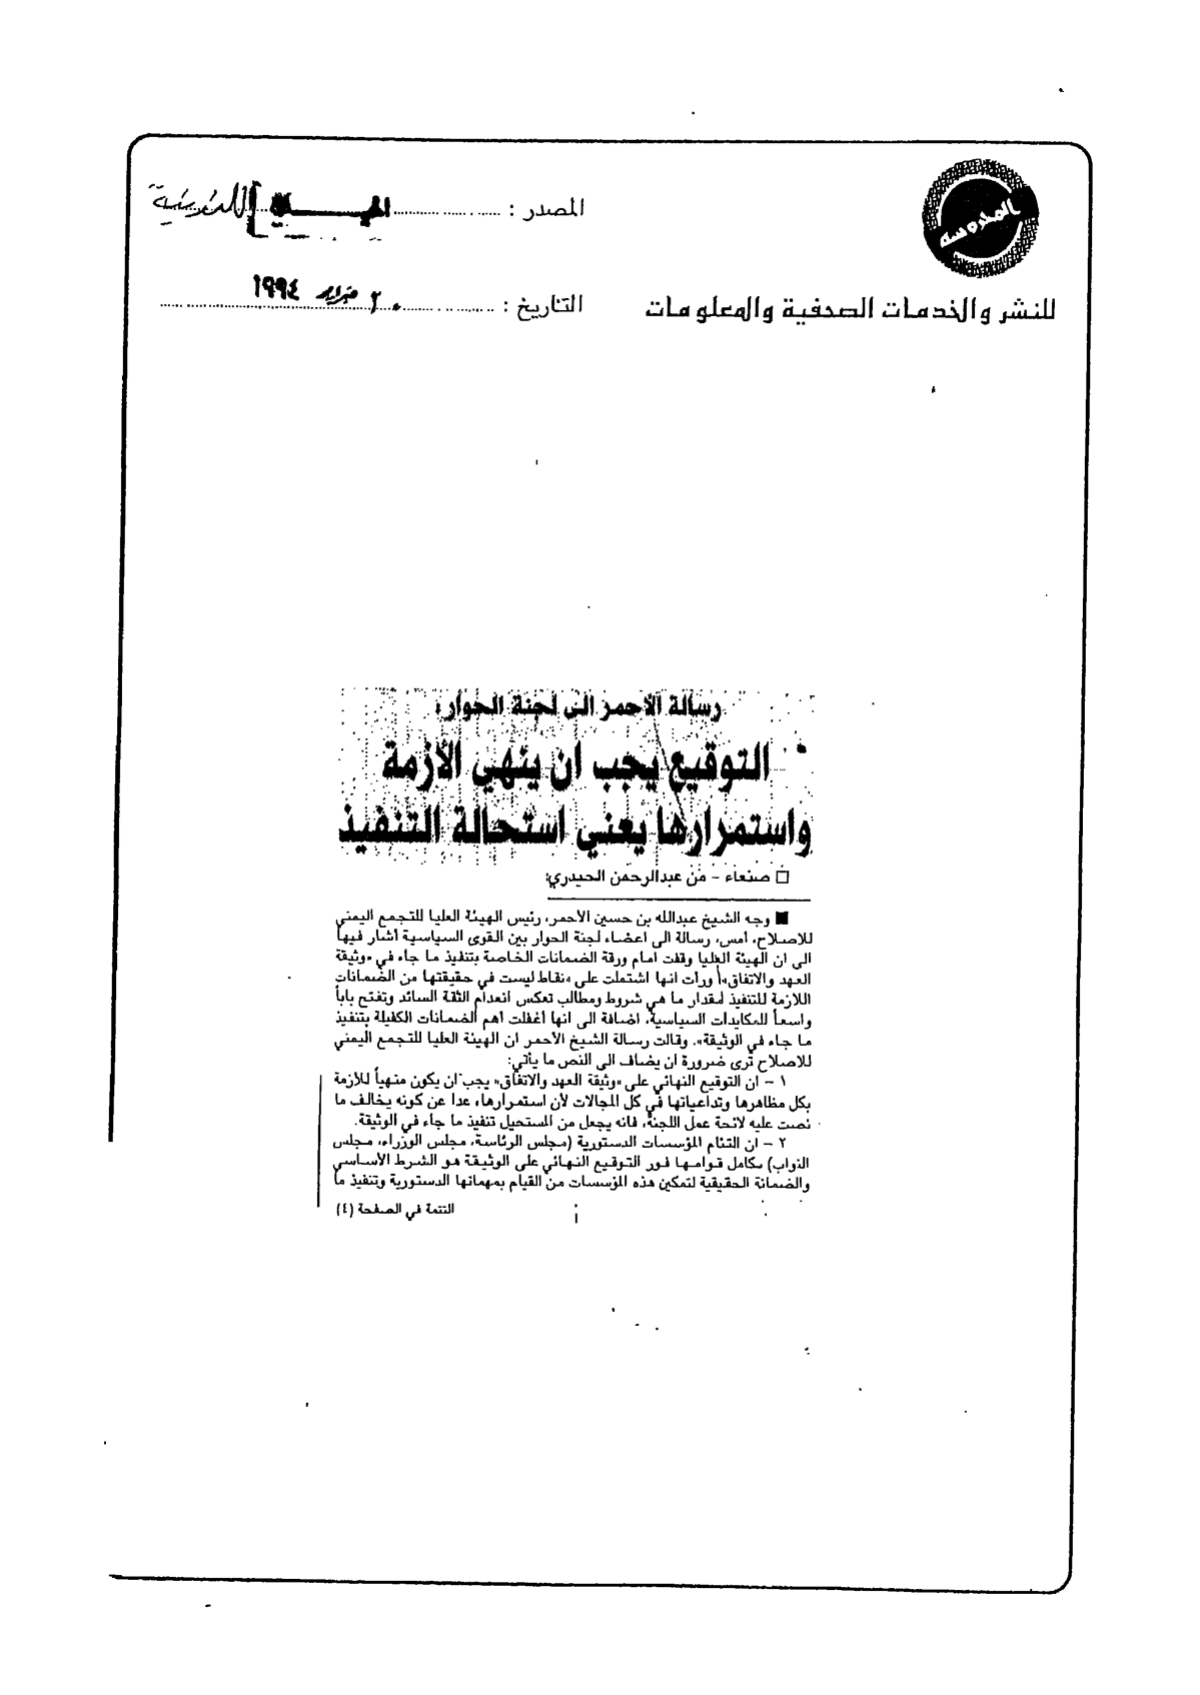 المصدر : الحياة اللندنية
المحروسة
التاريخ : ٢٠ فبراير ١٩٩٤
للنشر والخدمات الصحفية والمعلومات
رسالة الأحمر الى لجنة الحوار:
التوقيع يجب ان ينهي الأزمة
واستمرارها يعني استحالة التنفيذ
□ صنعاء - من عبدالرحمن الحيدري:
■ وجه الشيخ عبدالله بن حسين الأحمر، رئيس الهيئة العليا للتجمع اليمني
للاصلاح، أمس، رسالة الى اعضاء لجنة الحوار بين القوى السياسية أشار فيها
الى ان الهيئة العليا وقفت امام ورقة الضمانات الخاصة بتنفيذ ما جاء في «وثيقة
العهد والاتفاق» ورأت انها اشتملت على «نقاط ليست في حقيقتها من الضمانات
اللازمة للتنفيذ لمقدار ما هي شروط ومطالب تعكس انعدام الثقة السائد وتفتح باباً
واسعاً للمكايدات السياسية، اضافة الى انها أغفلت اهم الضمانات الكفيلة بتنفيذ
ما جاء في الوثيقة». وقالت رسالة الشيخ الأحمر ان الهيئة العليا للتجمع اليمني
للاصلاح ترى ضرورة ان يضاف الى النص ما يأتي:
١ - ان التوقيع النهائي على «وثيقة العهد والاتفاق» يجب ان يكون منهياً للأزمة
بكل مظاهرها وتداعياتها في كل المجالات لأن استمرارها، عدا عن كونه يخالف ما
نصت عليه لائحة عمل اللجنة، فانه يجعل من المستحيل تنفيذ ما جاء في الوثيقة.
٢ - ان التئام المؤسسات الدستورية (مجلس الرئاسة، مجلس الوزراء، مجلس
النواب) بكامل قوامها فور التوقيع النهائي على الوثيقة هو الشرط الأساسي
والضمانة الحقيقية لتمكين هذه المؤسسات من القيام بمهماتها الدستورية وتنفيذ ما
التتمة في الصفحة (٤)